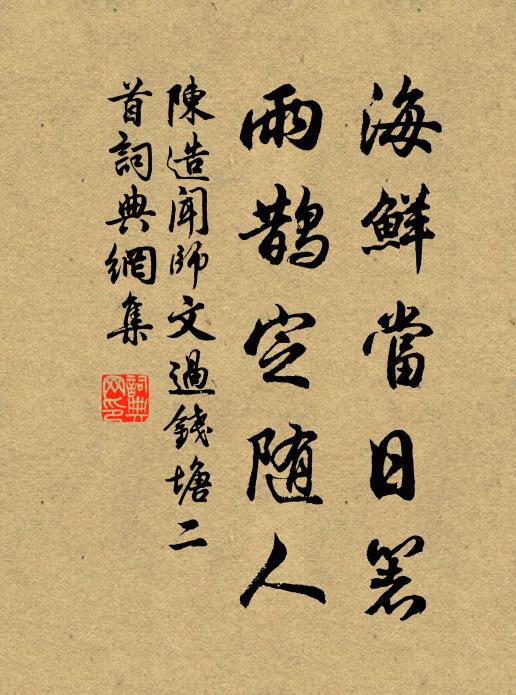 海鮮當日箸
雨鵲定随人
陳造聞師文過錢塘二
首詞典網集
詞典
网印